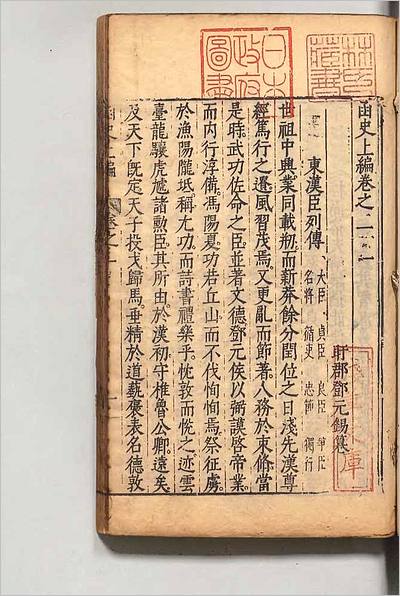 函史上編卷之二
盱郡鄧元錫纂
東漢臣列傳
大臣 貞臣 良臣 爭臣
名將 循吏 忠節 獨行
世祖中興業同載剏而新莽餘分閏位之日淺先漢尊
經篤行之遺風習茂焉又更亂而節著人務於束脩當
是時武功佐命之臣並著文德鄧元侯以弼謨啓帝業
而内行淳備馮陽夏功若丘山而不伐恂恂焉祭征虜
於漁陽隴坻稱尤功而詩書禮樂乎忱敦而悅之迹雲
臺龍驤虎虓諸勲臣其所由於漢初守椎魯公卿遠矣
及天下旣定天子投戈歸馬垂精於道藝褒表名德敦
日本
政府
圖書
林氏
藏書
淺草文庫